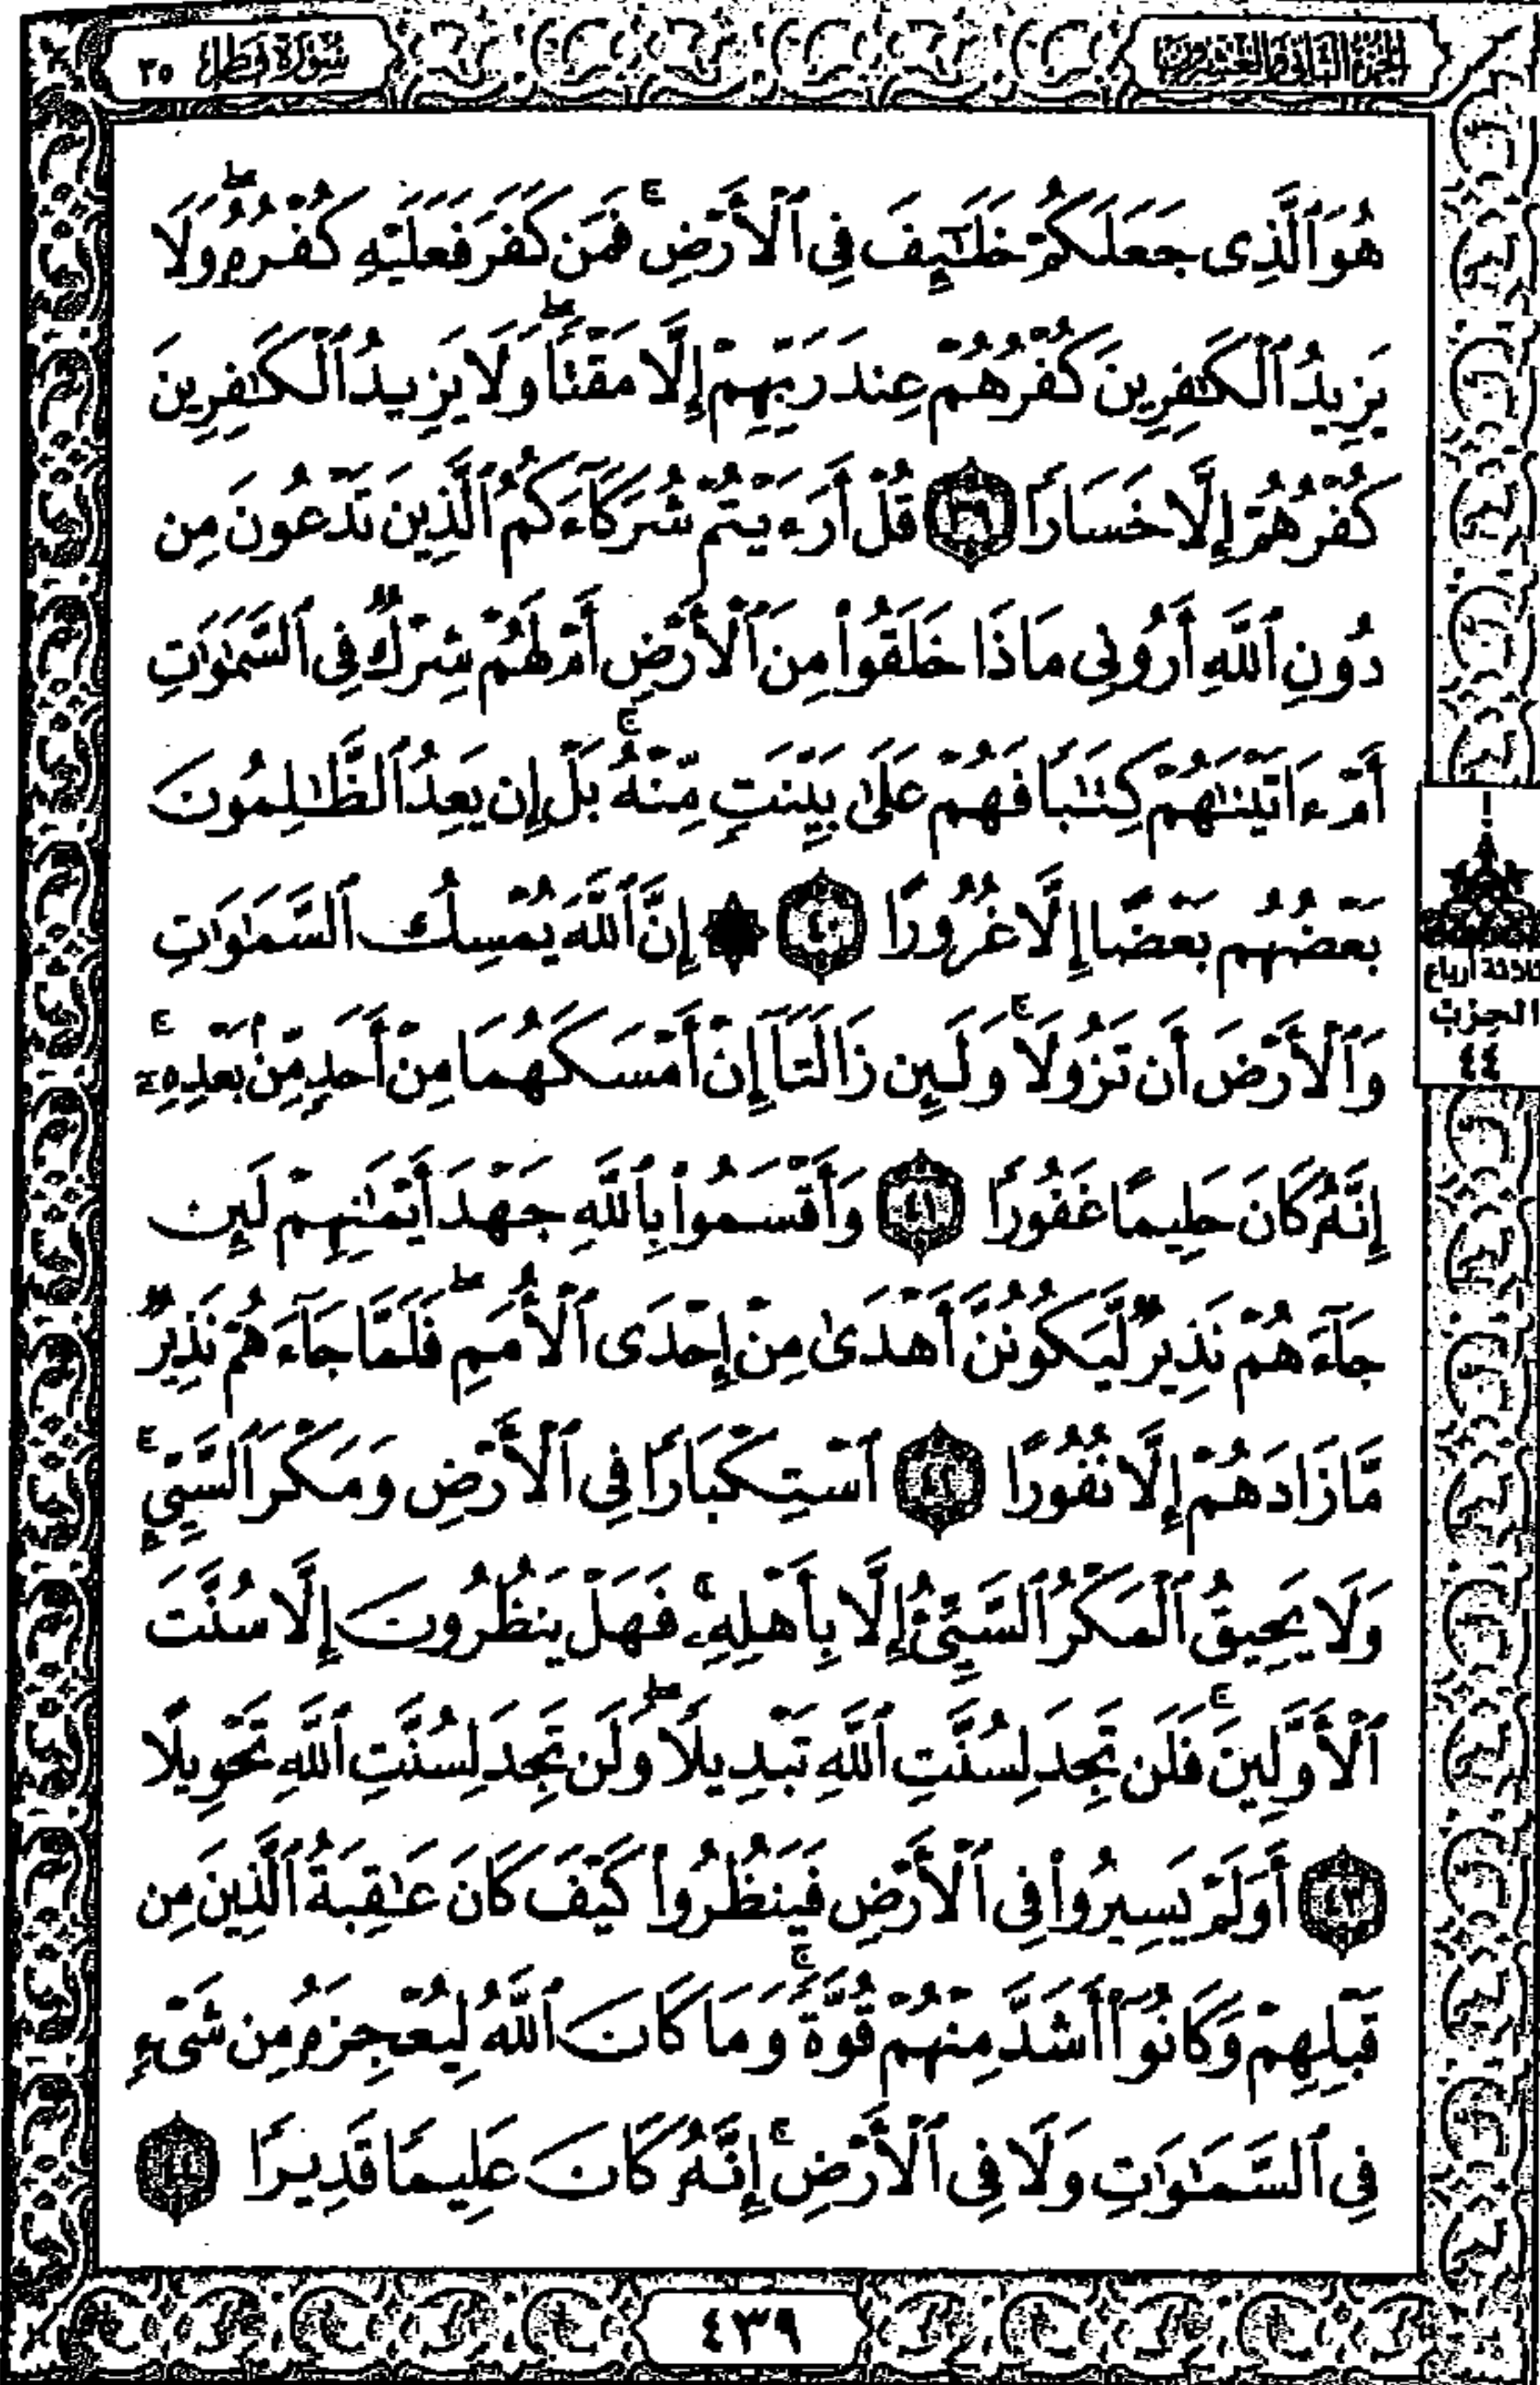 الجزء الثاني والعشرون
سورة فاطر ٣٥
هُوَ ٱلَّذِى جَعَلَكُمْ خَلَـٰٓئِفَ فِى ٱلْأَرْضِ ۚ فَمَن كَفَرَ فَعَلَيْهِ كُفْرُهُۥ ۖ وَلَا
يَزِيدُ ٱلْكَـٰفِرِينَ كُفْرُهُمْ عِندَ رَبِّهِمْ إِلَّا مَقْتًا ۖ وَلَا يَزِيدُ ٱلْكَـٰفِرِينَ
كُفْرُهُمْ إِلَّا خَسَارًا ٣٩ قُلْ أَرَءَيْتُمْ شُرَكَآءَكُمُ ٱلَّذِينَ تَدْعُونَ مِن
دُونِ ٱللَّهِ أَرُونِى مَاذَا خَلَقُوا۟ مِنَ ٱلْأَرْضِ أَمْ لَهُمْ شِرْكٌ فِى ٱلسَّمَـٰوَٰتِ
أَمْ ءَاتَيْنَـٰهُمْ كِتَـٰبًا فَهُمْ عَلَىٰ بَيِّنَتٍ مِّنْهُ ۚ بَلْ إِن يَعِدُ ٱلظَّـٰلِمُونَ
بَعْضُهُم بَعْضًا إِلَّا غُرُورًا ٤٠ ۞ إِنَّ ٱللَّهَ يُمْسِكُ ٱلسَّمَـٰوَٰتِ
وَٱلْأَرْضَ أَن تَزُولَا ۚ وَلَئِن زَالَتَآ إِنْ أَمْسَكَهُمَا مِنْ أَحَدٍ مِّنۢ بَعْدِهِۦٓ ۚ
إِنَّهُۥ كَانَ حَلِيمًا غَفُورًا ٤١ وَأَقْسَمُوا۟ بِٱللَّهِ جَهْدَ أَيْمَـٰنِهِمْ لَئِن
جَآءَهُمْ نَذِيرٌ لَّيَكُونُنَّ أَهْدَىٰ مِنْ إِحْدَى ٱلْأُمَمِ ۖ فَلَمَّا جَآءَهُمْ نَذِيرٌ
مَّا زَادَهُمْ إِلَّا نُفُورًا ٤٢ ٱسْتِكْبَارًا فِى ٱلْأَرْضِ وَمَكْرَ ٱلسَّيِّئِ ۚ
وَلَا يَحِيقُ ٱلْمَكْرُ ٱلسَّيِّئُ إِلَّا بِأَهْلِهِۦ ۚ فَهَلْ يَنظُرُونَ إِلَّا سُنَّتَ
ٱلْأَوَّلِينَ ۚ فَلَن تَجِدَ لِسُنَّتِ ٱللَّهِ تَبْدِيلًا ۖ وَلَن تَجِدَ لِسُنَّتِ ٱللَّهِ تَحْوِيلًا
٤٣ أَوَلَمْ يَسِيرُوا۟ فِى ٱلْأَرْضِ فَيَنظُرُوا۟ كَيْفَ كَانَ عَـٰقِبَةُ ٱلَّذِينَ مِن
قَبْلِهِمْ وَكَانُوٓا۟ أَشَدَّ مِنْهُمْ قُوَّةً ۚ وَمَا كَانَ ٱللَّهُ لِيُعْجِزَهُۥ مِن شَىْءٍ
فِى ٱلسَّمَـٰوَٰتِ وَلَا فِى ٱلْأَرْضِ ۚ إِنَّهُۥ كَانَ عَلِيمًا قَدِيرًا ٤٤
ثلاثة أرباع
الحزب
٤٤
٤٣٩